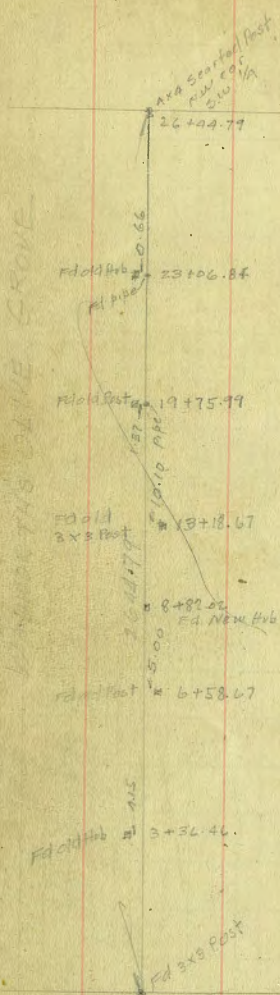 4x4 Scarfed Post
N.W. cor
S.W. 1/4
26+44.79
0.66
Fd old Hub 23+06.84
Fd pipe
Fd old Post 19+75.99
1.37
10.10 Pipe
Fd old
3x3 Post 13+18.67
2644.79
8+82.02
Fd. New Hub
5.00
Fd old Post 6+58.67
4.15
Fd old Hub 3+36.46
Fd 3x3 Post
OLIVE GROVE